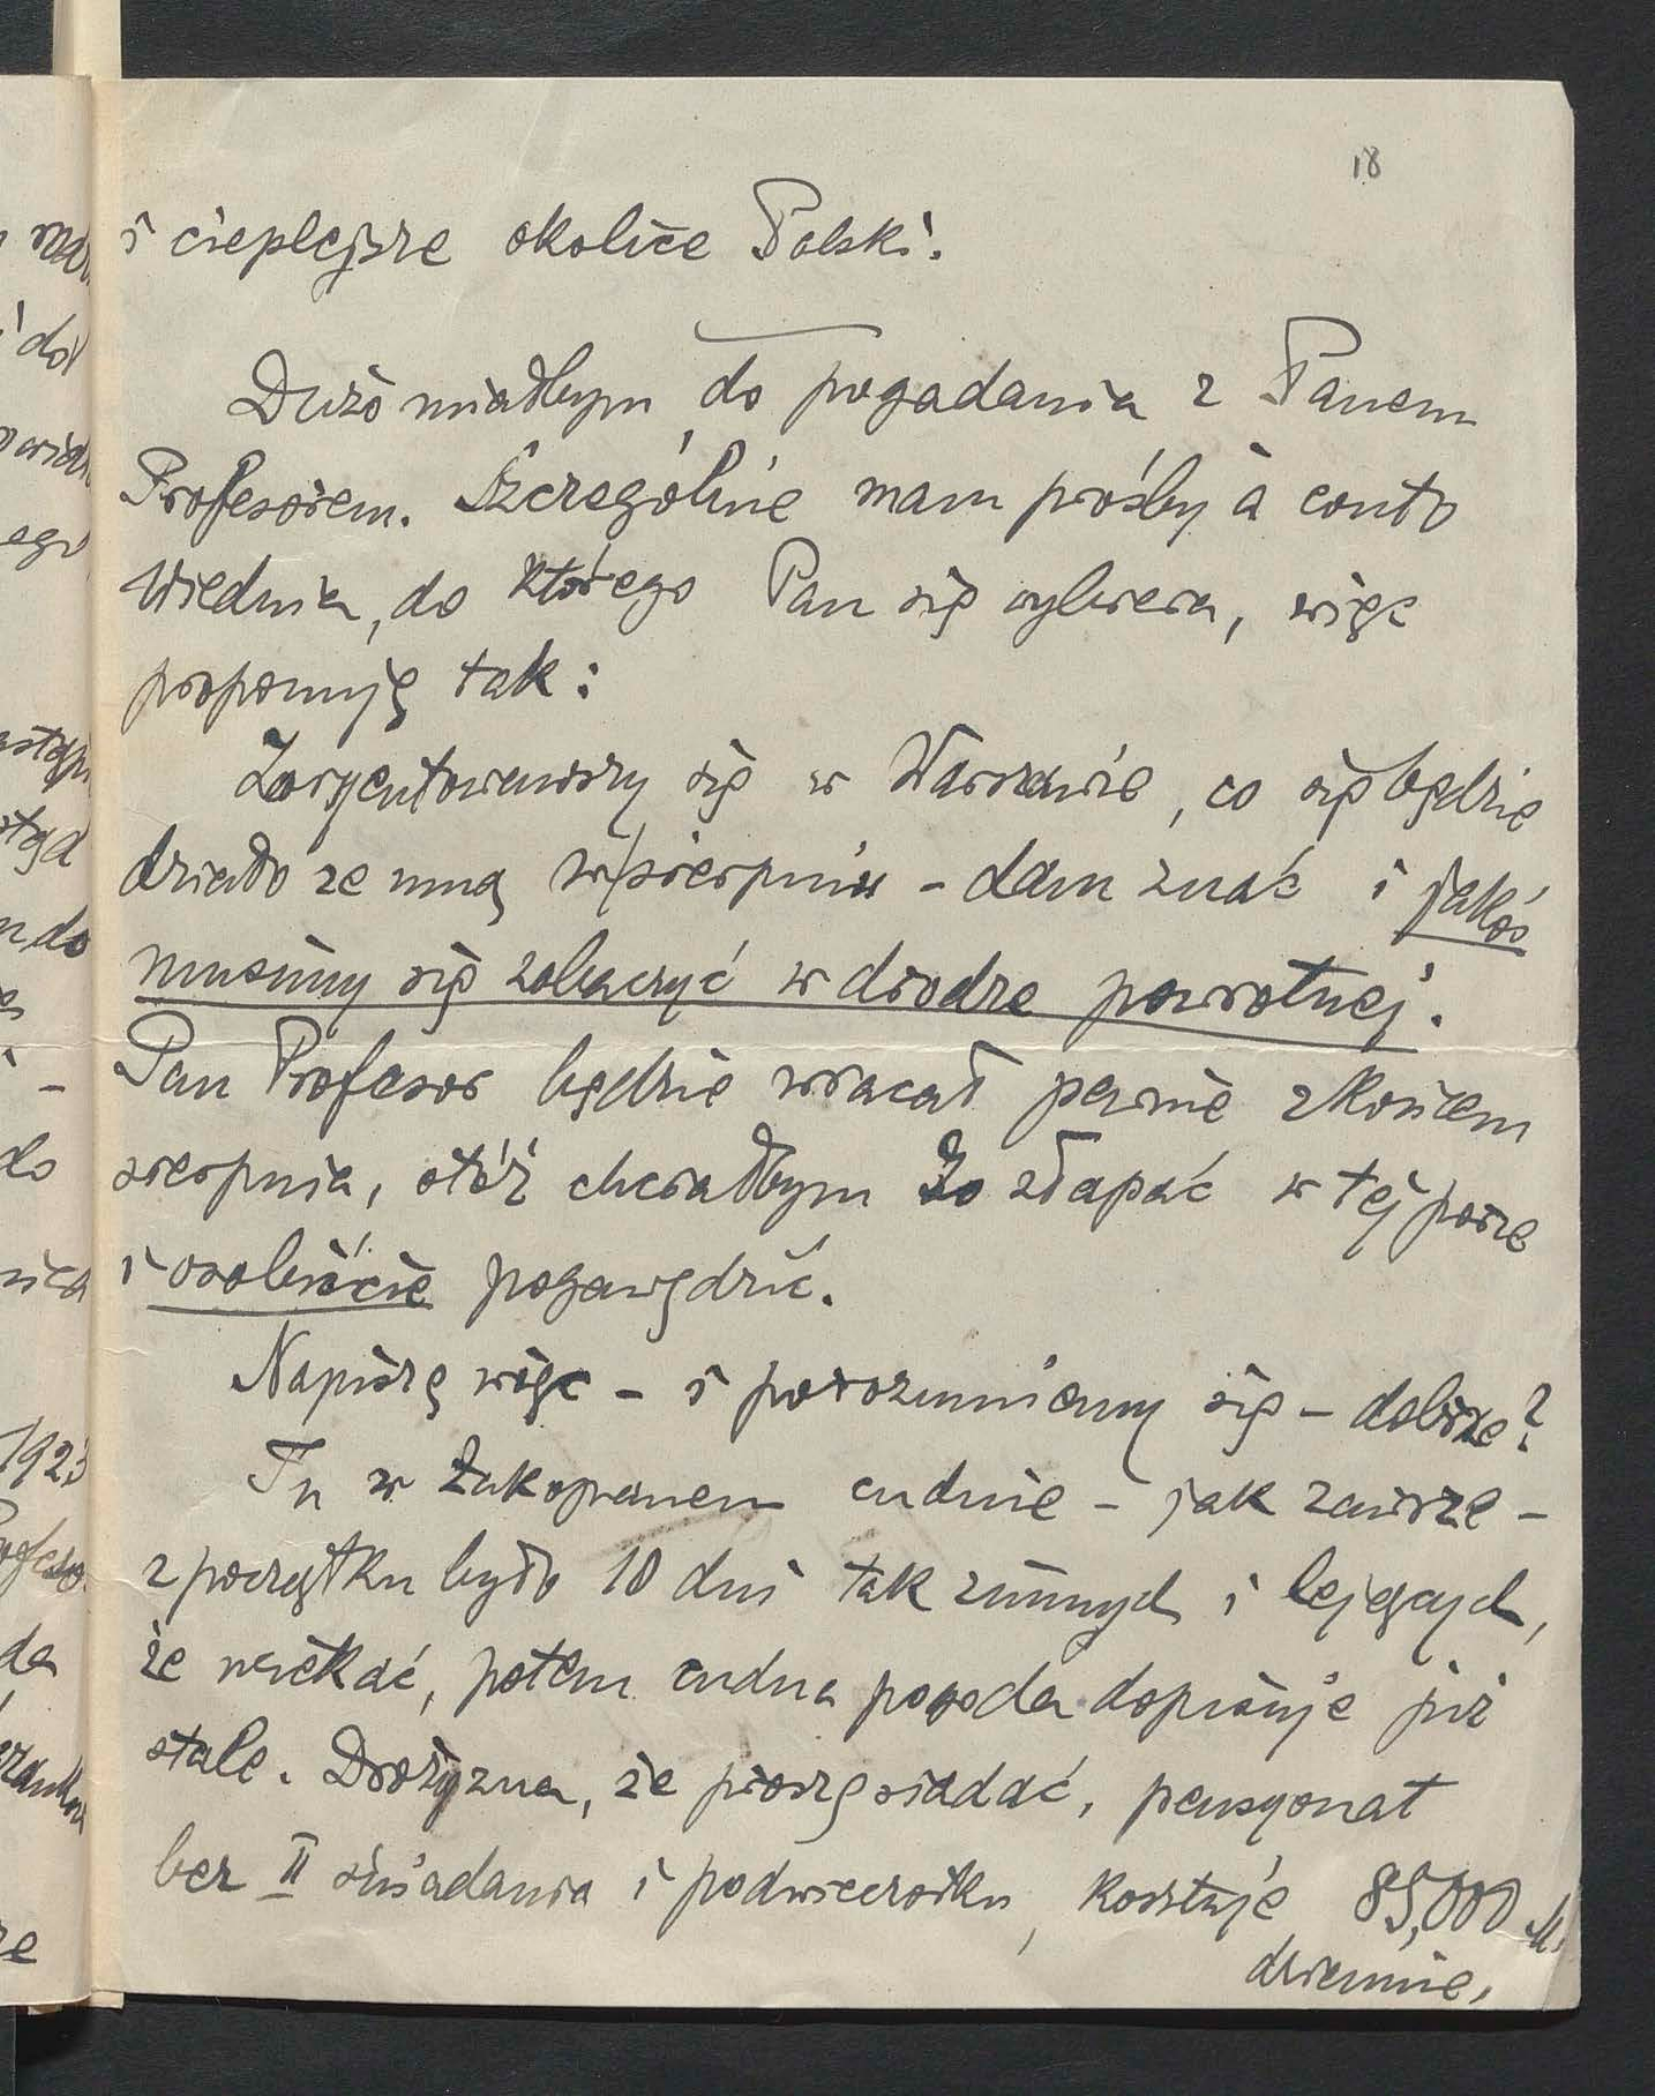 18
i cieplejsze okolice Polski.
Dużo miałbym do pogadania z Panem
Profesorem. Szczególnie mam prośby à conto
Wiednia, do którego Pan się wybiera, więc
proponuję tak:
Zoryentowawszy się w Warszawie, co się będzie
działo ze mną w sierpniu – dam znać i jakoś
musimy się zobaczyć w drodze powrotnej.
Pan Profesor będzie wracał pewnie z końcem
sierpnia, otóż chciałbym Go złapać w tej porze
i osobiście pogawędzić.
Napiszę więc – i porozumiemy się – dobrze?
Tu w Zakopanem cudnie – jak zawsze –
z początku było 10 dni tak zimnych i lejących,
że uciekać, potem cudna pogoda dopisuje już
stale. Drożyzna, że proszę siadać, pensyonat
bez II śniadania i podwieczorku, kosztuje 85,000 M.
dziennie,